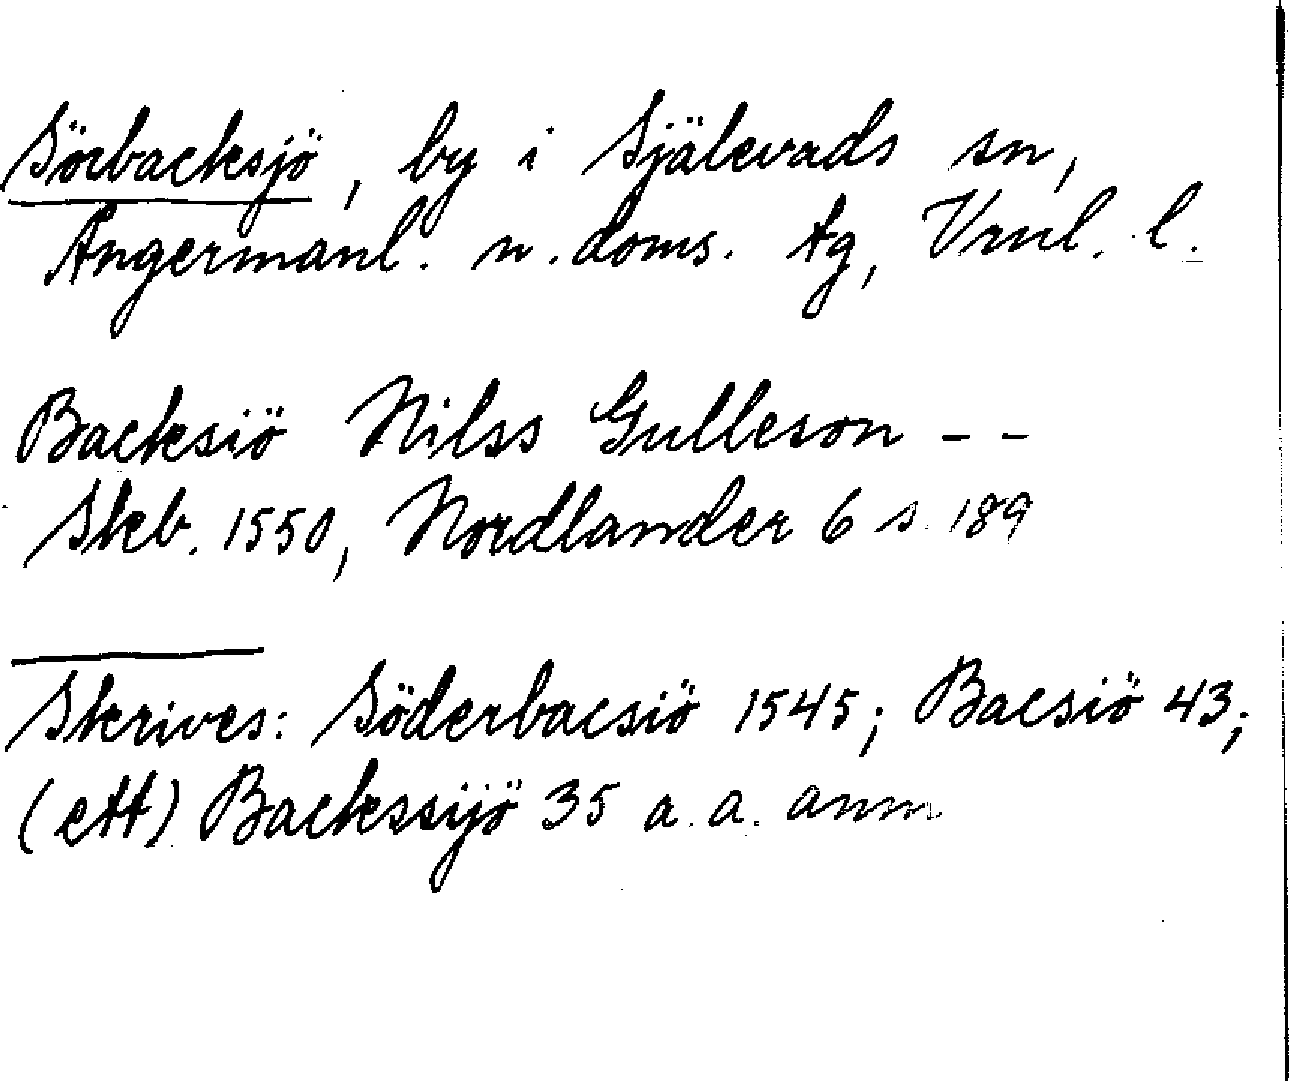 Sörbacksjö, by i Själevads sn,
Ångermanl. n. doms. tg, Vrnl. l.
Backsiö Nilss Gulleson - -
Skb. 1550, Nordlander 6 s. 189
Skrives: Söderbacsiö 1545; Bacsiö 43;
(ett) Backssijö 35 a. a. anm